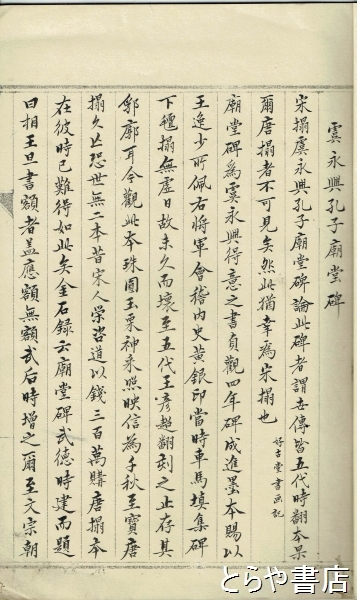 虞永興孔子廟堂碑
宋搨虞永興孔子廟堂碑論此碑者謂世傳皆五代時翻本果
爾唐搨者不可見矣然此猶幸為宋搨也 好古堂書画記
廟堂碑為虞永興得意之書貞觀四年碑成進墨本賜以
王逸少所佩右將軍會稽内史黄銀印當時車馬填集碑
下氊搨無虚日故未久而壞至五代王彦超翻刻之止存其
郛廓耳今觀此本珠圓玉栗神采照映信為千秋至寶唐
搨久亡恐世無二本昔宋人榮咨道以錢三百萬購唐搨本
在彼時已難得如此矣金石録云廟堂碑武德時建而題
曰相王旦書額者盖應額無額武后時增之爾至文宗朝
とらや書店